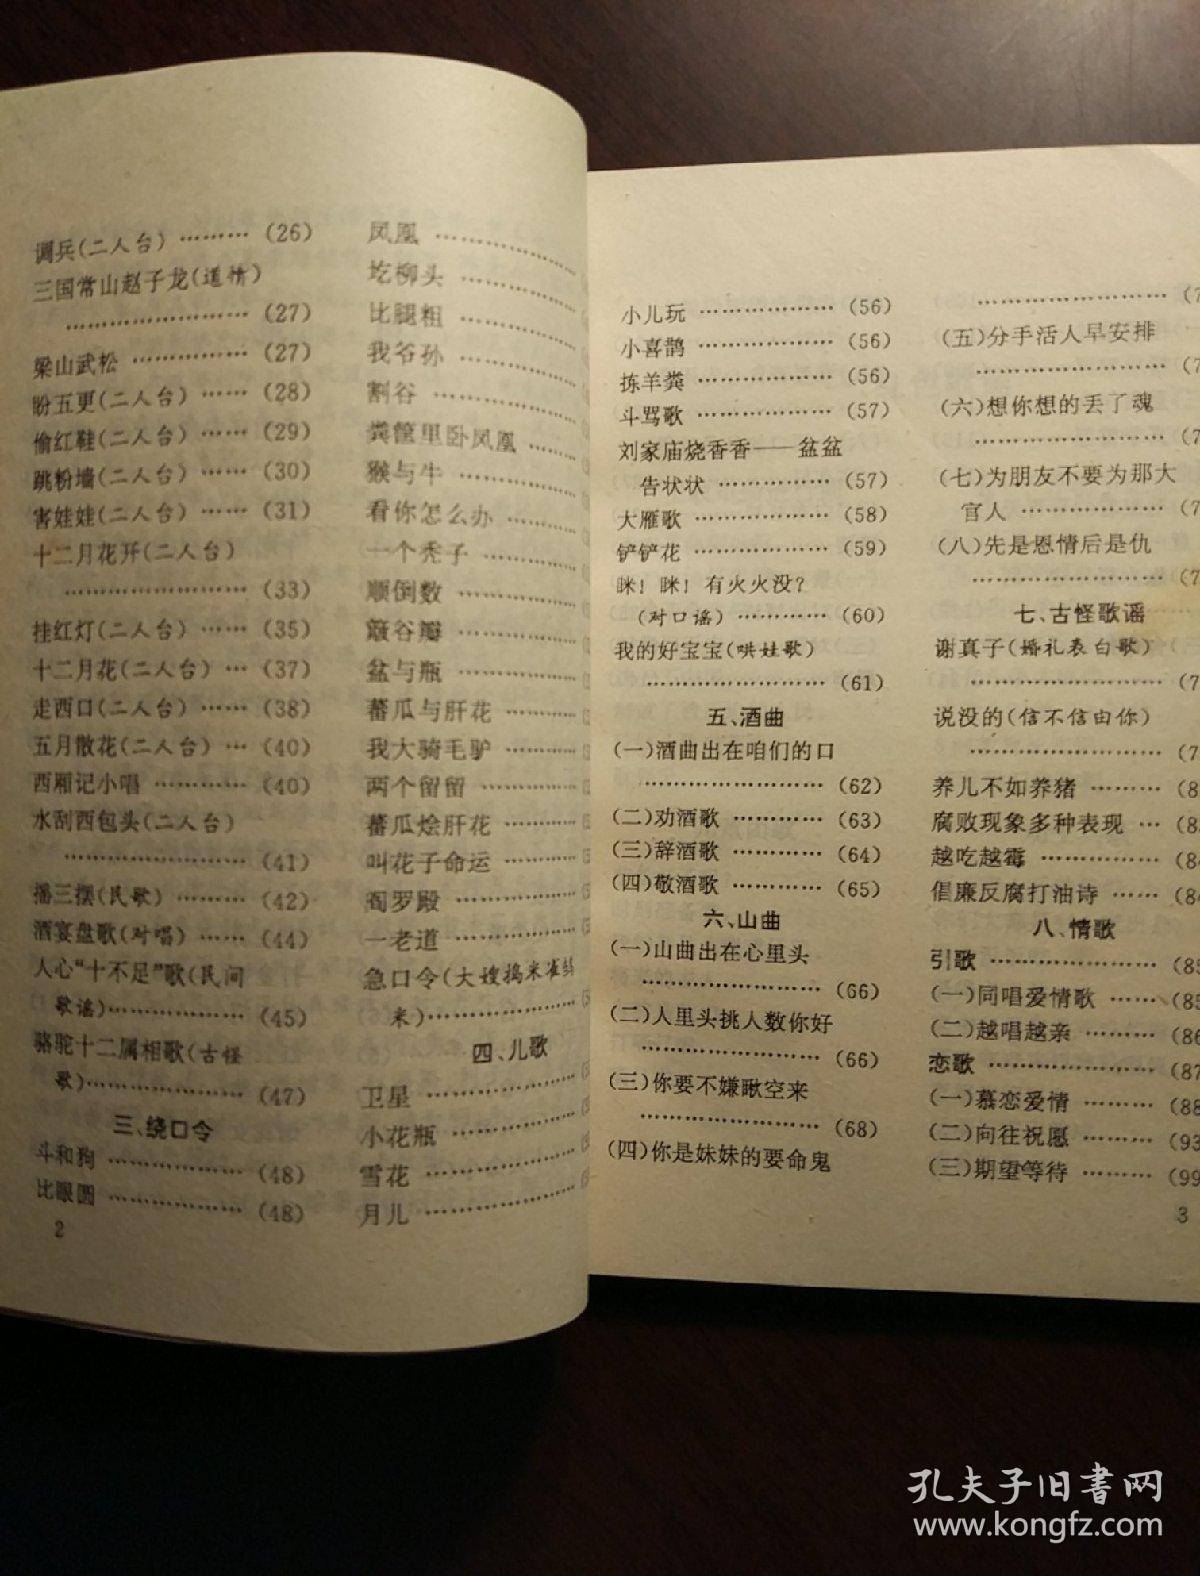 调兵(二人台) ……… (26)
三国常山赵子龙(道情)
…………………… (27)
梁山武松 …………… (27)
盼五更(二人台) …… (28)
偷红鞋(二人台) …… (29)
跳粉墙(二人台) …… (30)
害娃娃(二人台) …… (31)
十二月花开(二人台)
…………………… (33)
挂红灯(二人台) …… (35)
十二月花(二人台) … (37)
走西口(二人台) …… (38)
五月散花(二人台) … (40)
西厢记小唱 ………… (40)
水刮西包头(二人台)
…………………… (41)
摇三摆(民歌) ……… (42)
酒宴盘歌(对唱) …… (44)
人心“十不足”歌(民间
歌谣)……………… (45)
骆驼十二属相歌(古怪
歌)………………… (47)
三、绕口令
斗和狗 ……………… (48)
比眼圆 ……………… (48)
2
凤凰 ………………
圪柳头 ……………
比腿粗 ……………
我爷孙 ……………
割谷 ………………
粪筐里卧凤凰 ……
猴与牛 ……………
看你怎么办 ………
一个秃子 …………
顺倒数 ……………
簸谷瓣 ……………
盆与瓶 ……………
蕃瓜与肝花 ………
我大骑毛驴 ………
两个留留 …………
蕃瓜烩肝花 ………
叫花子命运 ………
阎罗殿 ……………
一老道 ……………
急口令(大嫂捣米雀
米)………………
四、儿歌
卫星 ………………
小花瓶 ……………
雪花 ………………
月儿 ………………
小儿玩 ……………… (56)
小喜鹊 ……………… (56)
拣羊粪 ……………… (56)
斗骂歌 ……………… (57)
刘家庙烧香香——盆盆
告状状 …………… (57)
大雁歌 ……………… (58)
铲铲花 ……………… (59)
眯！眯！有火火没？
(对口谣) ………… (60)
我的好宝宝(哄娃歌)
…………………… (61)
五、酒曲
(一)酒曲出在咱们的口
…………………… (62)
(二)劝酒歌 ………… (63)
(三)辞酒歌 ………… (64)
(四)敬酒歌 ………… (65)
六、山曲
(一)山曲出在心里头
…………………… (66)
(二)人里头挑人数你好
…………………… (66)
(三)你要不嫌瞅空来
…………………… (68)
(四)你是妹妹的要命鬼
…………………… (7
(五)分手活人早安排
…………………… (7
(六)想你想的丢了魂
…………………… (7
(七)为朋友不要为那大
官人 ……………… (7
(八)先是恩情后是仇
…………………… (7
七、古怪歌谣
谢真子(婚礼表白歌)
…………………… (7
说没的(信不信由你)
…………………… (7
养儿不如养猪 ……… (8
腐败现象多种表现 … (8
越吃越霉 …………… (84
倡廉反腐打油诗 …… (84
八、情歌
引歌 ………………… (85
(一)同唱爱情歌 …… (85
(二)越唱越亲 ……… (86
恋歌 ………………… (87
(一)慕恋爱情 ……… (88
(二)向往祝愿 ……… (93
(三)期望等待 ……… (99
3
孔夫子旧书网
www.kongfz.com